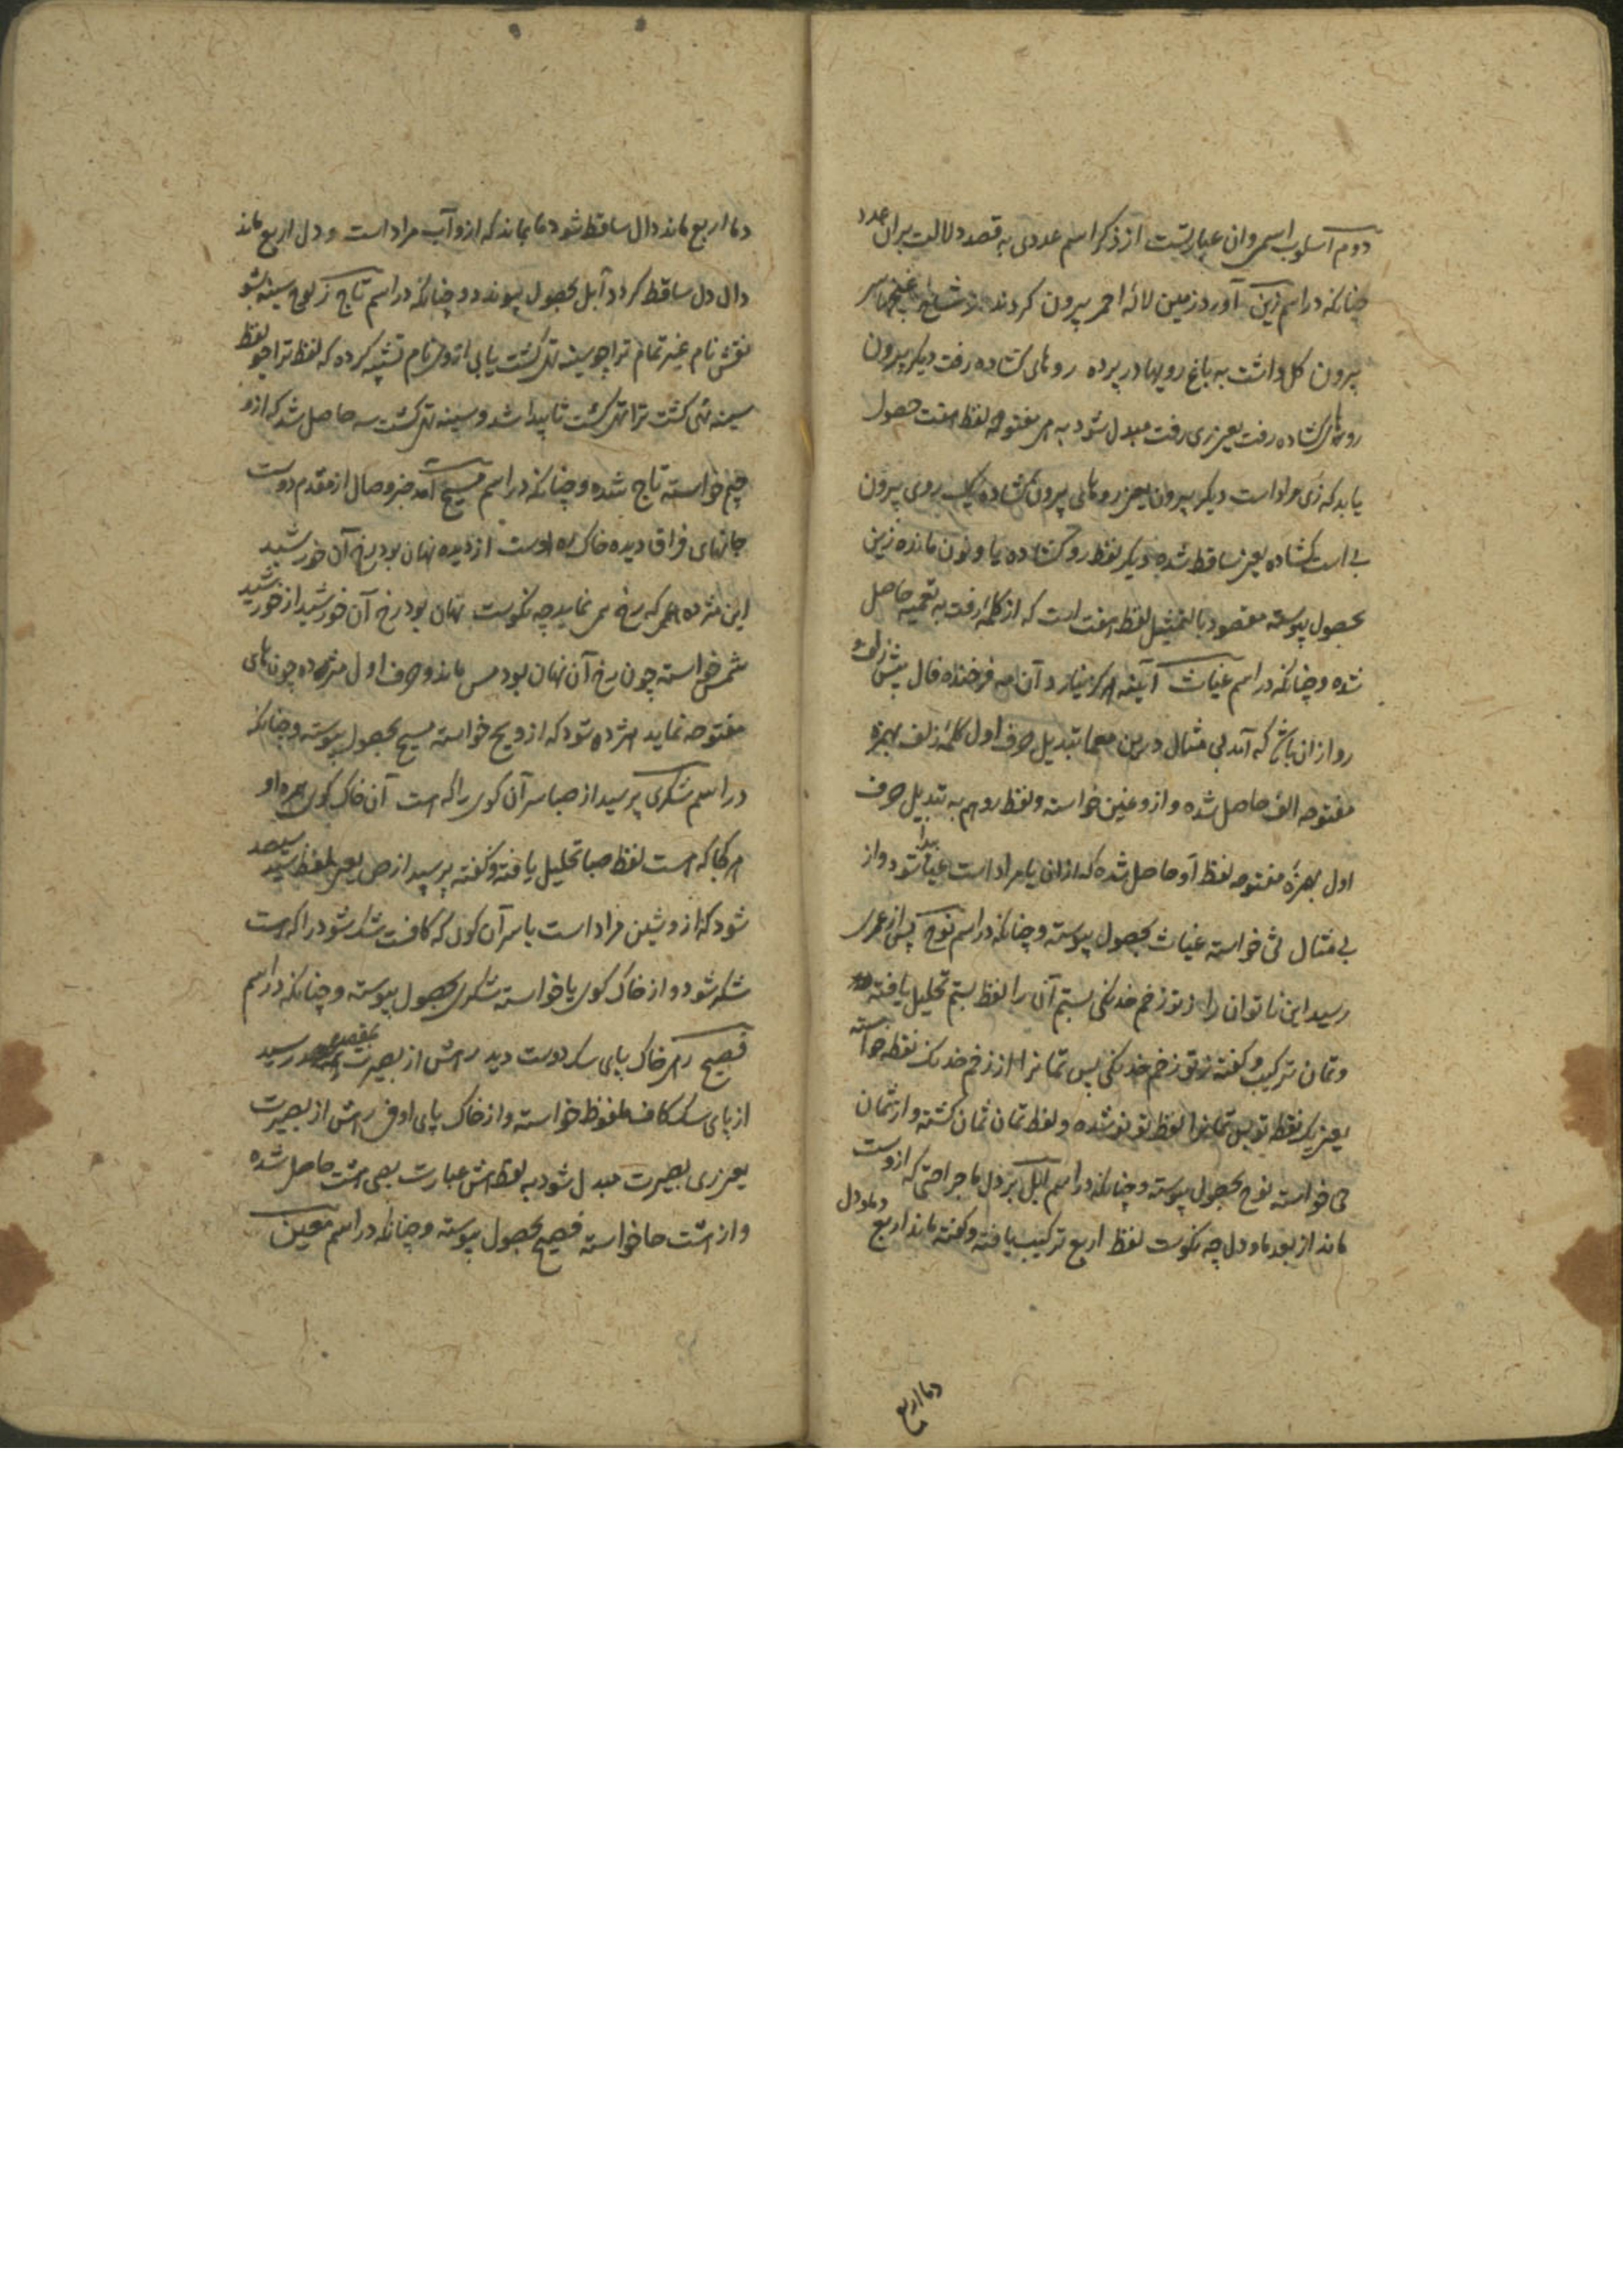 دوم اسلوب اسمی و ان عبارتست از ذکر اسم عددی به قصد دلالت بران عدد
چنانکه در اسم زین آورد زمین لاله احمر بیرون کردند از شاخ غنچها سر
بیرون کل داشت به باغ رویها در پرده روهای کشاده رفت دیکر بیرون
روهای کشاده رفت یعنی زی رفت مبدل شود به می مفتوحه لفظ هفت حصول
یابد که زی مراد است دیکر بیرون یعنی روهای بیرون کشاده یک روی بیرون
بی است کشاده یعنی ساقط شده دیکر لفظ رو کشاده یا و نون مانده زین
بحصول پیوسته مقصود بالتمثیل لفظ هفت است که از کلمه رفت به تعمیه حاصل
شده و چنانکه در اسم غیاث آیینه هر کز نیارد آن مه فرخنده فال پیش زلف و
رو ازان باشد که آمد بی مثال درین معما تبدیل حرف اول کلمه زلف بهمزه
مفتوحه الف حاصل شده و ازو غین خواسته و لفظ رو هم به تبدیل حرف
اول بهمزه مفتوحه لفظ او حاصل شده که ازان یا مراد است غیا پیدا شود و از
بی مثال ثی خواسته غیاث بحصول پیوسته و چنانکه در اسم نوح پس از عمری
رسید این ناتوان را ز تو زخم خدنکی بستم آن را لفظ بستم تحلیل یافته
و تمان ترکیب و کفته ز تو زخم خدنکی پس تمانرا از زخم خدنک نقطه خواسته
یعنی یک نقطه تو پس تمانرا لفظ تو نو شده و لفظ تمان ثمان کشته و از ثمان
حی خواسته نوح بحصول پیوسته و چنانکه در اسم ابل بر دل ما جراحتی که ازوست
ماند از بعد ما و دل چه نکوست لفظ اربع ترکیب یافته و کفته ماند اربع دما و دل
دما اربع
دما اربع ماند دال ساقط شود دما بماند که ازو آب مراد است و دل اربع ماند
دال دل ساقط کردد آبل بحصول پیوندد و چنانکه در اسم تاج ز لوح سینه بشو
نقش نام غیر تمام ترا چو سینه تهی کشت یابی ازو نام تشبیه کرده که لفظ ترا چو لفظ
سینه تهی کشت ترا تهی کشت تا پیدا شد و سینه تهی کشت سه حاصل شد که ازو
جیم خواسته تاج شده و چنانکه در اسم مسیح آمد خبر وصال از مقدم دوست
جانهای فراق دیده خاک ره اوست از دیده نهان بود رخ آن خورشید
این مژده همی که رخ می نماید چه نکوست نهان بود رخ آن خورشید از خورشید
شمس خواسته چون رخ آن نهان بود مس ماند و حرف اول مژده چون های
مفتوحه نماید هژده شود که ازو یح خواسته مسیح بحصول پیوسته و چنانکه
در اسم شکری پرسید از صبا سر آن کوی را که هست آن خاک کوی همره او
هر کجا که هست لفظ صبا تحلیل یافته و کفته پرسید از ص یعنی لفظ سید سیصد
شود که ازو شین مراد است با سر آن کوی که کافست شک شود را که هست
شکر شود و از خاک کوی یا خواسته شکری بحصول پیوسته و چنانکه در اسم
فصیح هر خاک پای سک دوست دید رهش از بصیرت بمقصد رسید
از پای سک کاف ملفوظ خواسته و از خاک پای او فی رهش از بصیرت
یعنی ری بصیرت مبدل شود به لفظ هش عبارت بصی هشت حاصل شده
و از هشت حا خواسته فصیح بحصول پیوسته و چنانکه در اسم معین